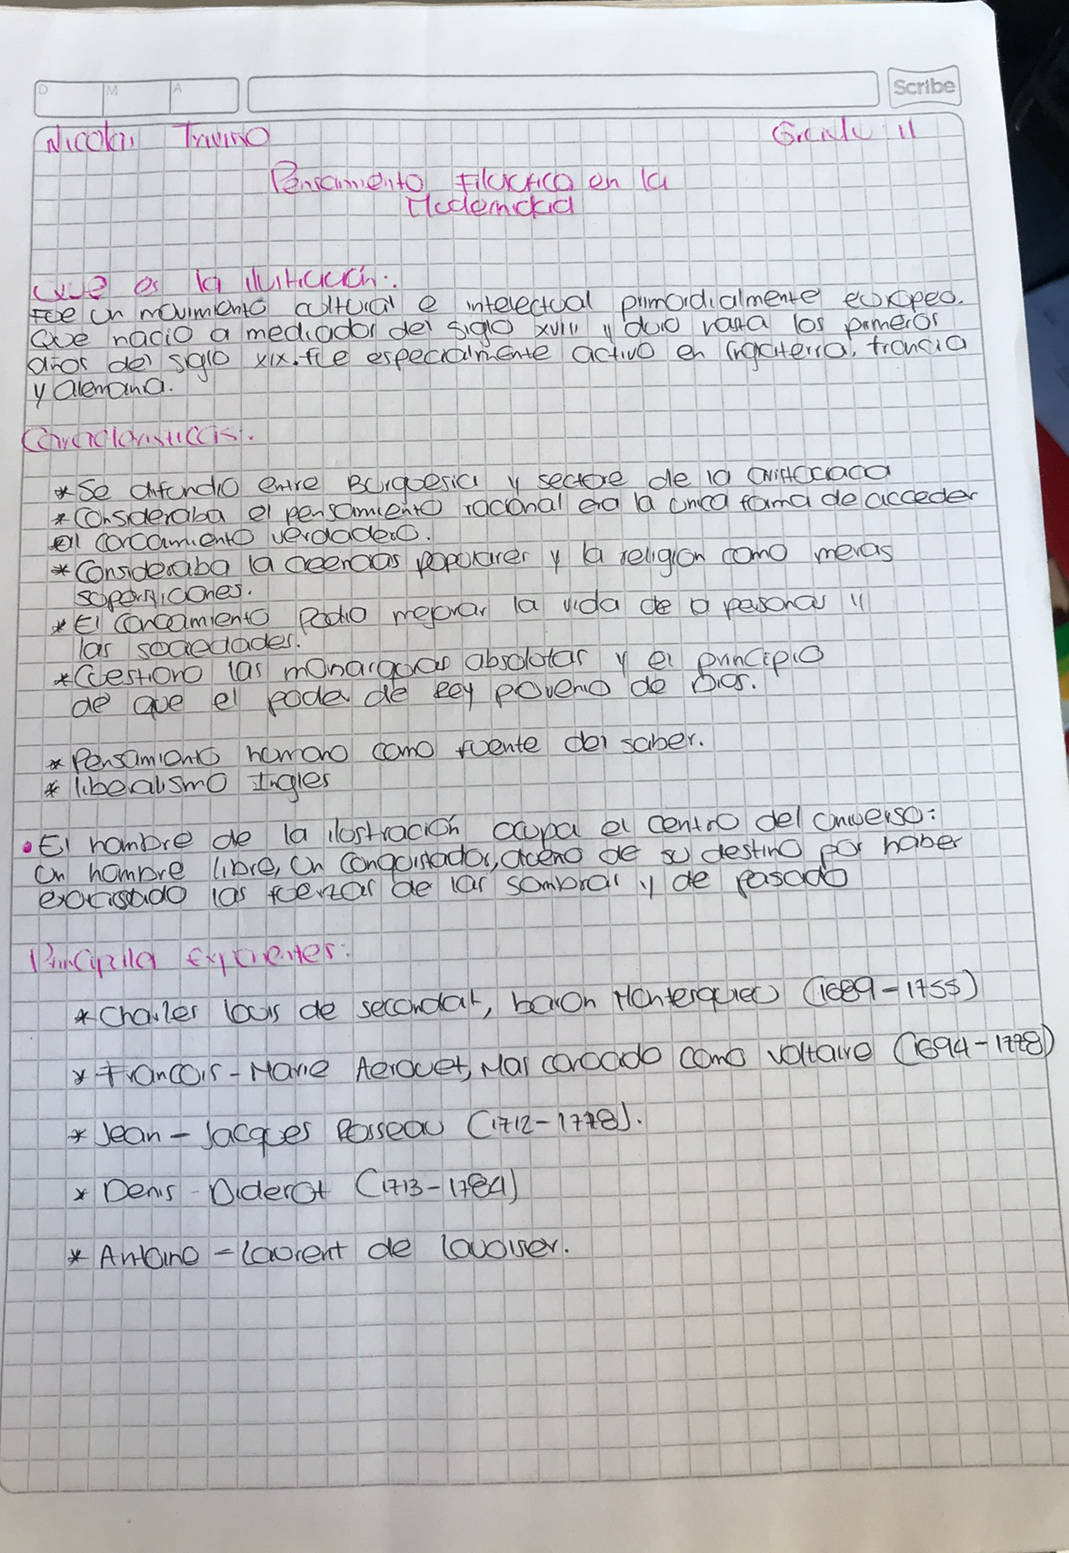 D M A Scribe
Nicolas Trivino Grado 11
Pensamiento Filosofico en la
Modernidad
Que es la ilustración:
Fue un movimiento cultural e intelectual primordialmente europeo.
Que nacio a mediador del siglo XVIII y duro hasta los primeros
años del siglo XIX. fue especialmente activo en inglaterra, francia
y alemana.
Caracteristicas:.
* Se difundio entre Burguesia y sectore de la aristocacia
* Consideraba el pensamiento racional era la unica forma de acceder
al conocamiento verdadero.
* Consideraba la creencias populares y la religion como meras
supersticiones.
* El conocamiento Podio mejorar la vida de a personas y
las sociedades.
* Cuestiono las monarquias absolutas y el principio
de que el poder de Rey provenio de Dios.
* Pensamiento humano como fuente del saber.
* libealismo Ingles
• El hombre de la ilustración ocupa el centro del universo:
Un hombre libre, un conquistador, dueño de su destino por haber
exorcistado las fuerzas de las sombras y de pasado
Principila exponentes:
* Charles louis de secondat, baron Montesquieu (1689-1755)
* Francois-Marie Aerouet, Mas conocado como voltaire (1694-1778)
* Jean-Jacques Rosseau (1712-1778).
* Denis-Diderot (1713-1784)
* Antoine-laurent de lavoiser.